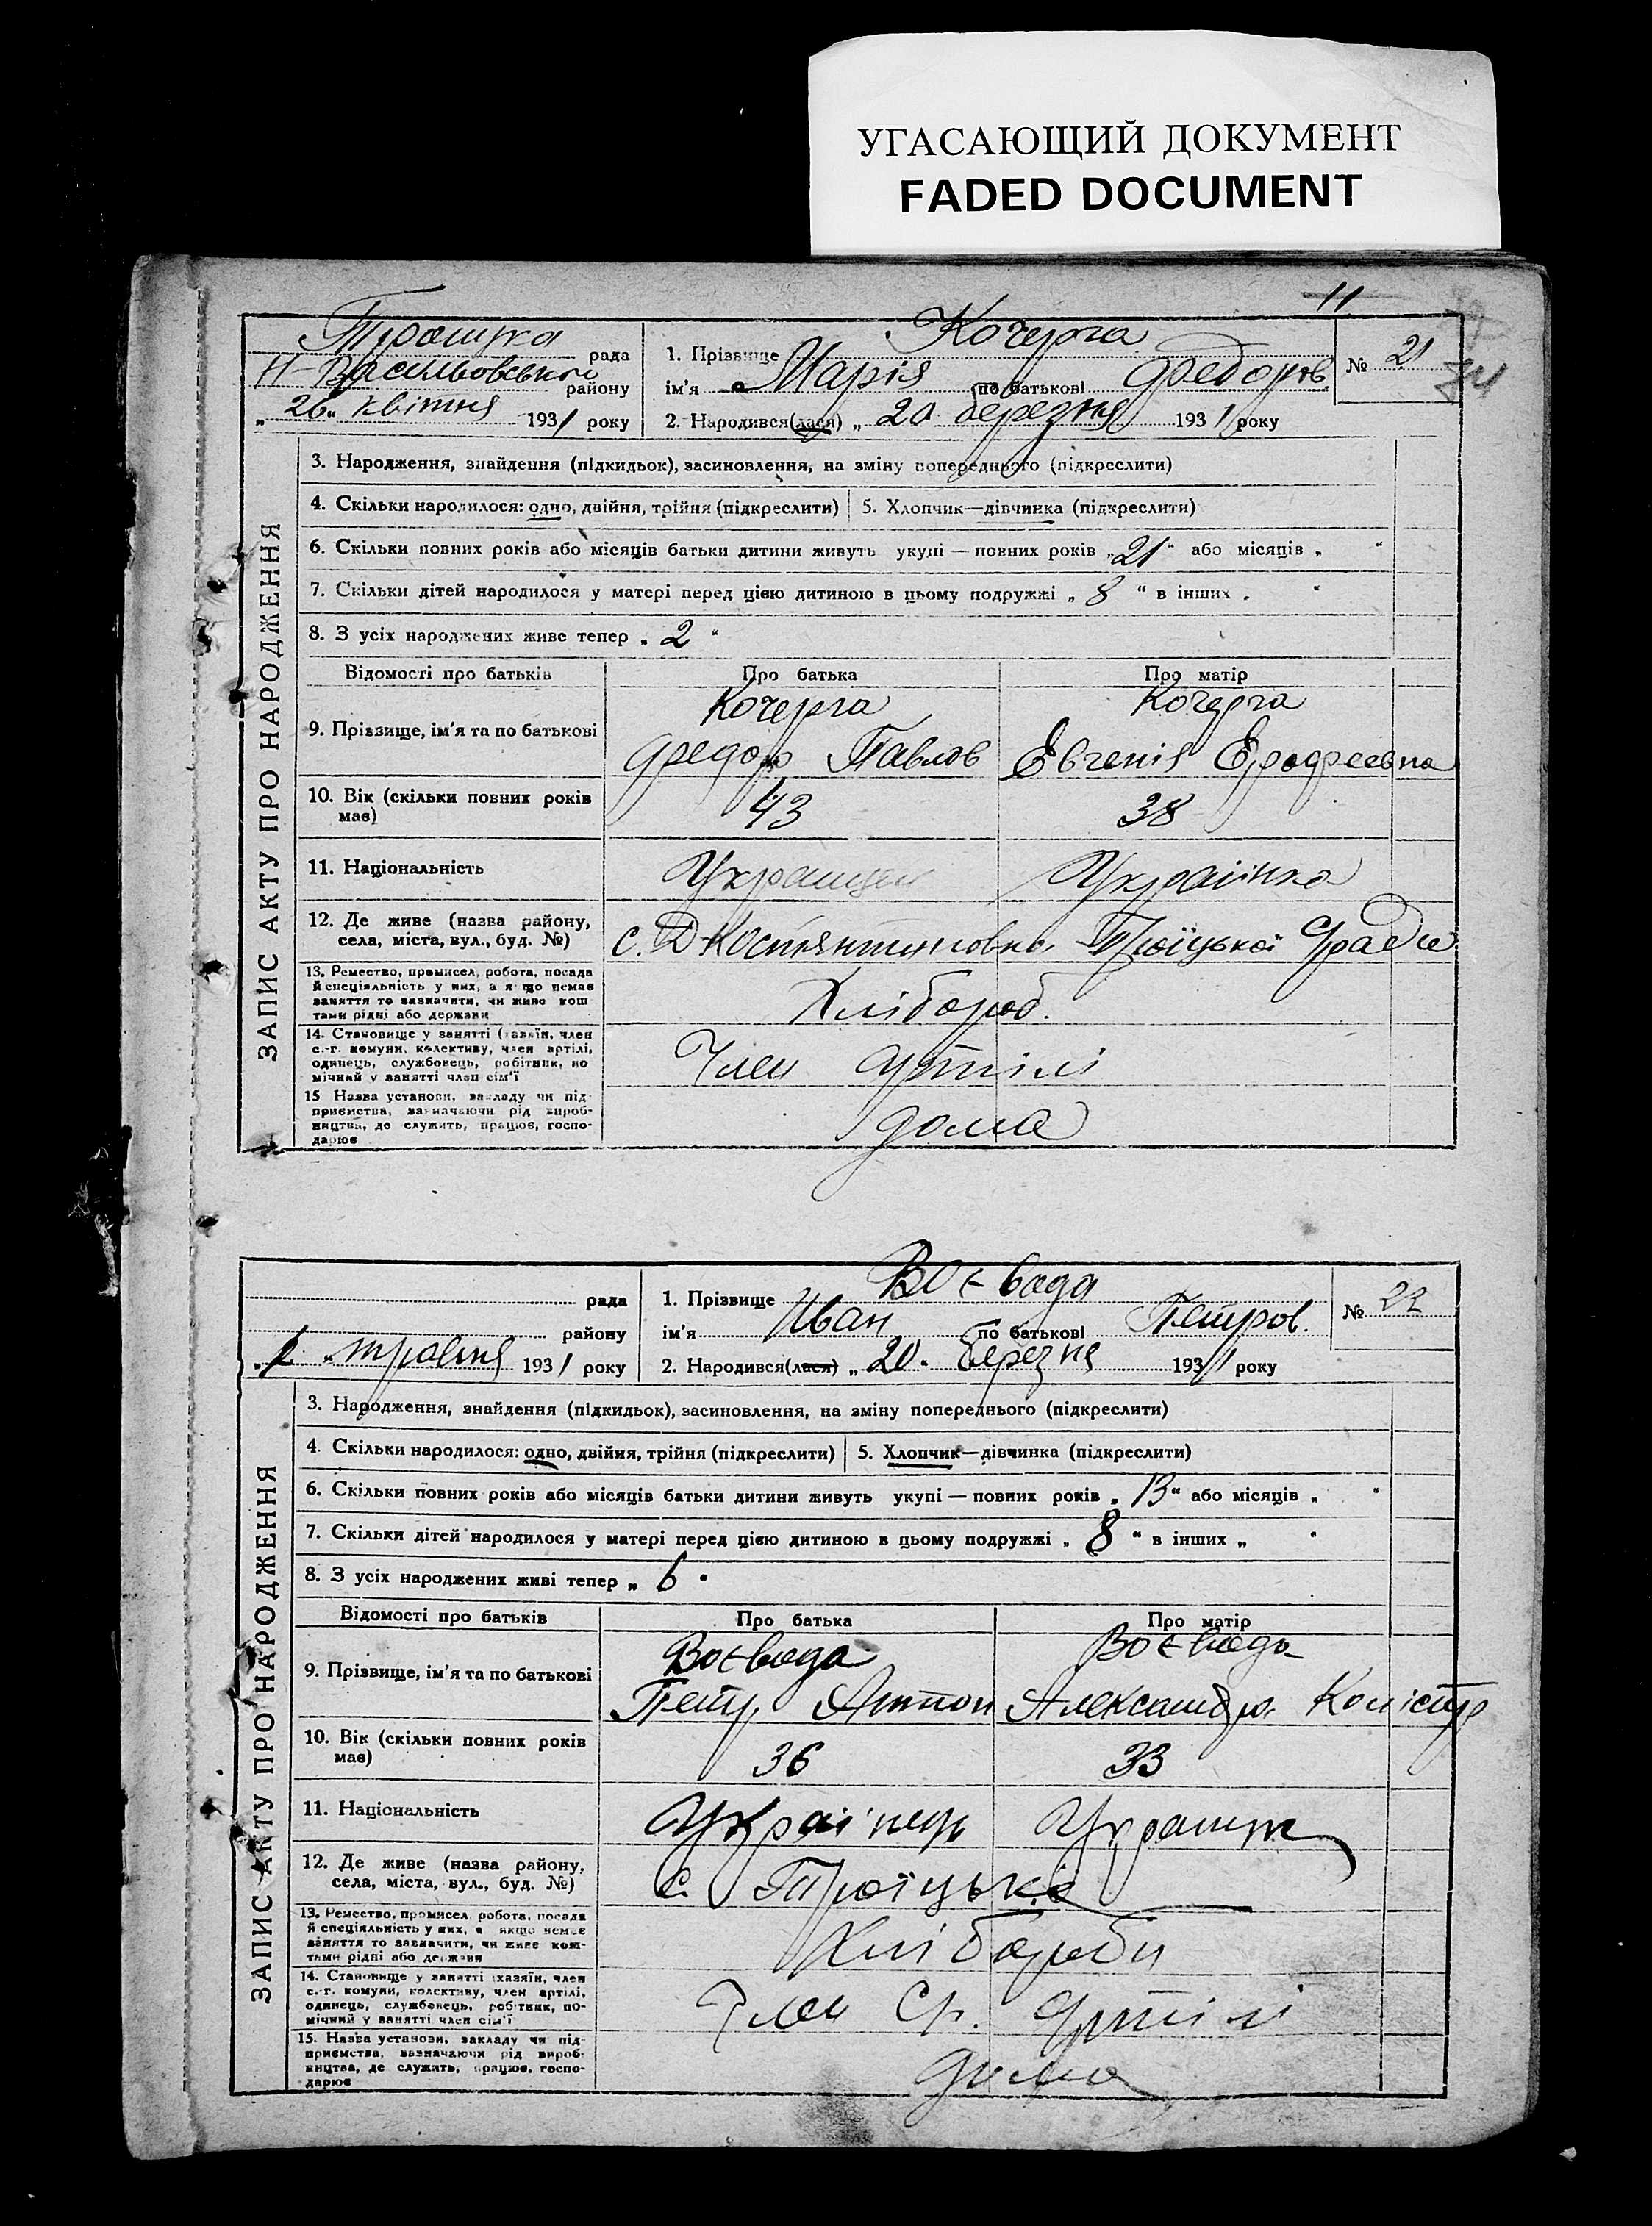 УГАСАЮЩИЙ ДОКУМЕНТ
FADED DOCUMENT
11
рада
Н-Васильовського району
„ 26 „ квітня 1931 року
1. Прізвище Кочерга
ім'я Марія по батькові Федорів
2. Народився(лася) „ 20 березня 1931 року
№ 21
ЗАПИС АКТУ ПРО НАРОДЖЕННЯ
3. Народження, знайдення (підкидьок), засиновлення, на зміну попереднього (підкреслити)
4. Скільки народилося: одно, двійня, трійня (підкреслити) 5. Хлопчик—дівчинка (підкреслити)
6. Скільки повних років або місяців батьки дитини живуть укупі — повних років „ 21 “ або місяців „ “
7. Скільки дітей народилося у матері перед цією дитиною в цьому подружжі „ 8 “ в інших „ “
8. З усіх народжених живе тепер „ 2 “
Відомості про батьків Про батька Про матір
9. Прізвище, ім'я та по батькові Кочерга Кочерга
Федор Павлов Евгенія
10. Вік (скільки повних років має) 43 38
11. Національність Украинец Українка
12. Де живе (назва району, села, міста, вул., буд. №) с. Д-Костянтиновка Троїцької С/ради
13. Ремество, промисел, робота, посада й спеціяльність у них, а якщо немає заняття то зазначити, чи живе коштами рідні або держави Хлібороб.
14. Становище у занятті (хазяїн, член с.-г. комуни, колективу, член артілі, одинець, службовець, робітник, помічний у занятті член сім'ї Член Артілі
15 Назва установи, закладу чи підприємства, зазначаючи рід виробництва, де служить, працює, господарює дома
рада
району
„ 1 „ травня 1931 року
1. Прізвище Воєвода
ім'я Иван по батькові Петров.
2. Народився(лася) „ 20. березня 1931 року
№ 22
ЗАПИС АКТУ ПРО НАРОДЖЕННЯ
3. Народження, знайдення (підкидьок), засиновлення, на зміну попереднього (підкреслити)
4. Скільки народилося: одно, двійня, трійня (підкреслити) 5. Хлопчик—дівчинка (підкреслити)
6. Скільки повних років або місяців батьки дитини живуть укупі — повних років „ 13 “ або місяців „ “
7. Скільки дітей народилося у матері перед цією дитиною в цьому подружжі „ 8 “ в інших „ “
8. З усіх народжених живі тепер „ 6 “
Відомості про батьків Про батька Про матір
9. Прізвище, ім'я та по батькові Воєвода Воєвода
Петр Антон Александра
10. Вік (скільки повних років має) 36 33
11. Національність Українець
12. Де живе (назва району, села, міста, вул., буд. №) с. Троїцьке
13. Ремество, промисел, робота, посада й спеціяльність у них, а якщо немає заняття то зазначити, чи живе коштами рідні або держави Хлібороби
14. Становище у занятті (хазяїн, член с.-г. комуни, колективу, член артілі, одинець, службовець, робітник, помічний у занятті член сім'ї Член Ст. Артілі
15. Назва установи, закладу чи підприємства, зазначаючи рід виробництва, де служить, працює, господарює дома